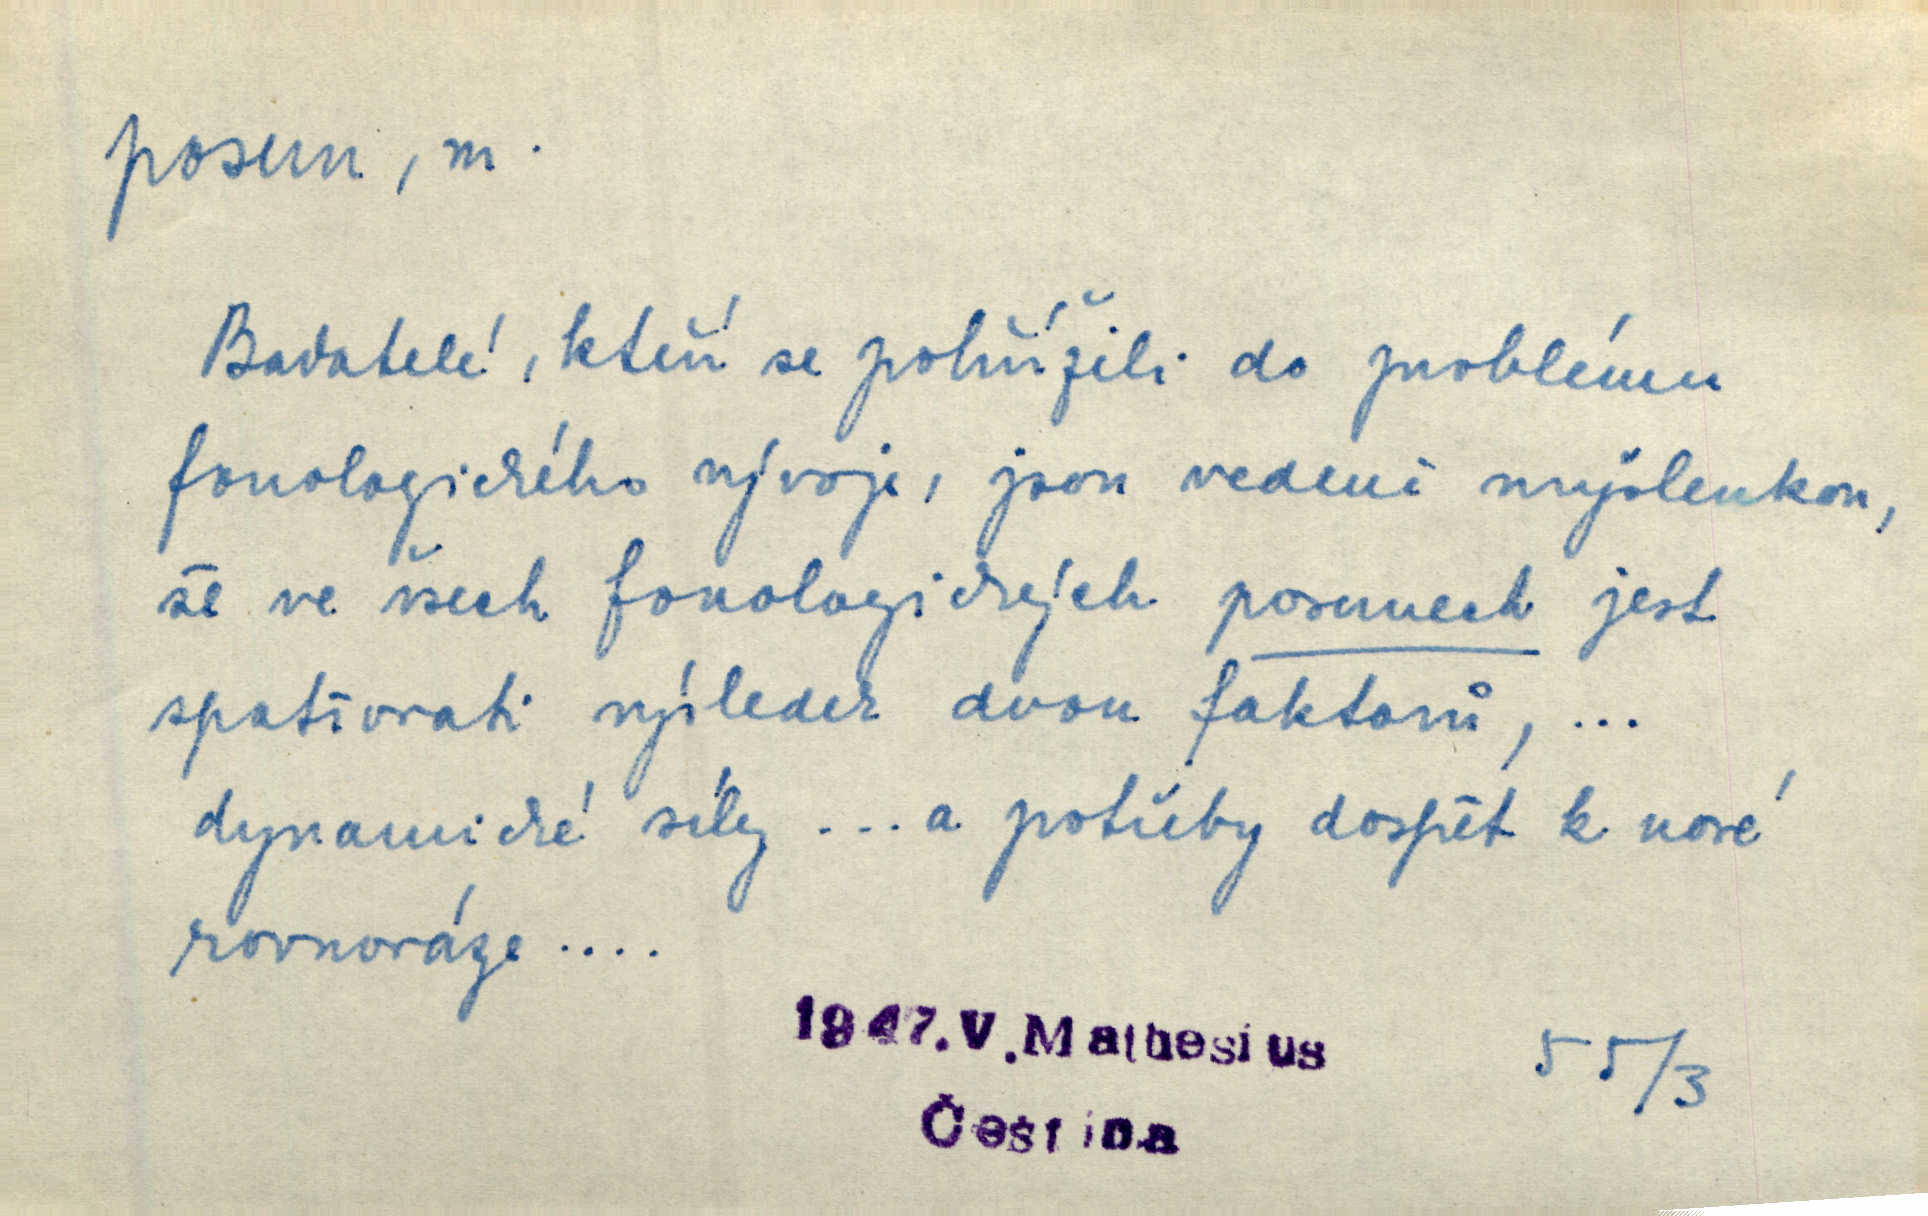 posun, m.
Badatelé, kteří se pohřížili do problému
fonologického vývoje, jsou vedeni myšlenkou,
že ve všech fonologických posunech jest
spatřovati výsledek dvou faktorů, ...
dynamické síly ... a potřeby dospět k nové
rovnováze ....
1947.V.Mathesius
Čeština
55/3